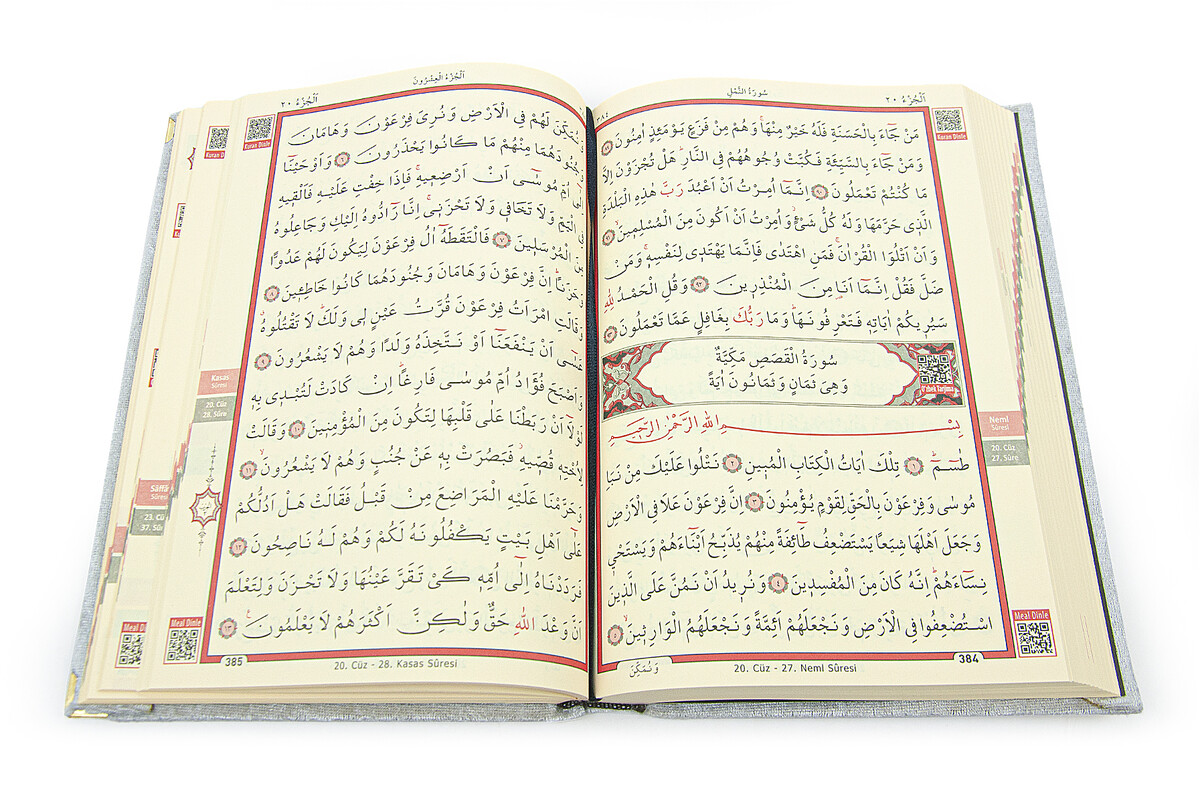 اَلْجُزْءُ ٢٠
سُورَةُ النَّمْلِ
Kuran Dinle
مَنْ جَٓاءَ بِالْحَسَنَةِ فَلَهُ خَيْرٌ مِنْهَاۚ وَهُمْ مِنْ فَزَعٍ يَوْمَئِذٍ اٰمِنُونَ ٨٩
وَمَنْ جَٓاءَ بِالسَّيِّئَةِ فَكُبَّتْ وُجُوهُهُمْ فِي النَّارِۜ هَلْ تُجْزَوْنَ اِلَّا
مَا كُنْتُمْ تَعْمَلُونَ ٩٠ اِنَّمَٓا اُمِرْتُ اَنْ اَعْبُدَ رَبَّ هٰذِهِ الْبَلْدَةِ
الَّذ۪ي حَرَّمَهَا وَلَهُ كُلُّ شَيْءٍۘ وَاُمِرْتُ اَنْ اَكُونَ مِنَ الْمُسْلِم۪ينَۙ ٩١
وَاَنْ اَتْلُوَا الْقُرْاٰنَۚ فَمَنِ اهْتَدٰى فَاِنَّمَا يَهْتَد۪ي لِنَفْسِه۪ۚ وَمَنْ
ضَلَّ فَقُلْ اِنَّمَٓا اَنَا۬ مِنَ الْمُنْذِر۪ينَ ٩٢ وَقُلِ الْحَمْدُ لِلّٰهِ
سَيُر۪يكُمْ اٰيَاتِه۪ فَتَعْرِفُونَهَاۜ وَمَا رَبُّكَ بِغَافِلٍ عَمَّا تَعْمَلُونَ ٩٣
سُورَةُ الْقَصَصِ مَكِّيَّةٌ
وَهِيَ ثَمَانٍ وَثَمَانُونَ اٰيَةً
بِسْمِ اللّٰهِ الرَّحْمٰنِ الرَّح۪يمِ
طٰسٓمٓ ١ تِلْكَ اٰيَاتُ الْكِتَابِ الْمُب۪ينِ ٢ نَتْلُوا عَلَيْكَ مِنْ نَبَأِ
مُوسٰى وَفِرْعَوْنَ بِالْحَقِّ لِقَوْمٍ يُؤْمِنُونَ ٣ اِنَّ فِرْعَوْنَ عَلَا فِي الْاَرْضِ
وَجَعَلَ اَهْلَهَا شِيَعًا يَسْتَضْعِفُ طَٓائِفَةً مِنْهُمْ يُذَبِّحُ اَبْنَٓاءَهُمْ وَيَسْتَحْي۪
نِسَٓاءَهُمْۜ اِنَّهُ كَانَ مِنَ الْمُفْسِد۪ينَ ٤ وَنُر۪يدُ اَنْ نَمُنَّ عَلَى الَّذ۪ينَ
اسْتُضْعِفُوا فِي الْاَرْضِ وَنَجْعَلَهُمْ اَئِمَّةً وَنَجْعَلَهُمُ الْوَارِث۪ينَۙ ٥
Neml
Sûresi
20. Cüz
27. Sûre
Meal Dinle
384
20. Cüz - 27. Neml Sûresi
وَنُمَكِّنَ
اَلْجُزْءُ الْعِشْرُونَ
اَلْجُزْءُ ٢٠
Kuran Dinle
وَنُمَكِّنَ لَهُمْ فِي الْاَرْضِ وَنُرِيَ فِرْعَوْنَ وَهَامَانَ
وَجُنُودَهُمَا مِنْهُمْ مَا كَانُوا يَحْذَرُونَ ٦ وَاَوْحَيْنَٓا
اِلٰٓى اُمِّ مُوسٰٓى اَنْ اَرْضِع۪يهِۚ فَاِذَا خِفْتِ عَلَيْهِ فَاَلْق۪يهِ
فِي الْيَمِّ وَلَا تَخَاف۪ي وَلَا تَحْزَن۪يۚ اِنَّا رَٓادُّوهُ اِلَيْكِ وَجَاعِلُوهُ
مِنَ الْمُرْسَل۪ينَ ٧ فَالْتَقَطَهُٓ اٰلُ فِرْعَوْنَ لِيَكُونَ لَهُمْ عَدُوًّا
وَحَزَنًاۜ اِنَّ فِرْعَوْنَ وَهَامَانَ وَجُنُودَهُمَا كَانُوا خَاطِـ۪ٔينَ ٨
وَقَالَتِ امْرَاَتُ فِرْعَوْنَ قُرَّتُ عَيْنٍ ل۪ي وَلَكَۜ لَا تَقْتُلُوهُۗ
عَسٰٓى اَنْ يَنْفَعَنَٓا اَوْ نَتَّخِذَهُ وَلَدًا وَهُمْ لَا يَشْعُرُونَ ٩
وَاَصْبَحَ فُؤٰادُ اُمِّ مُوسٰى فَارِغًاۜ اِنْ كَادَتْ لَتُبْد۪ي بِه۪
لَوْلَٓا اَنْ رَبَطْنَا عَلٰى قَلْبِهَا لِتَكُونَ مِنَ الْمُؤْمِن۪ينَ ١٠ وَقَالَتْ
لِاُخْتِه۪ قُصّ۪يهِۘ فَبَصُرَتْ بِه۪ عَنْ جُنُبٍ وَهُمْ لَا يَشْعُرُونَۙ ١١
وَحَرَّمْنَا عَلَيْهِ الْمَرَاضِعَ مِنْ قَبْلُ فَقَالَتْ هَلْ اَدُلُّكُمْ
عَلٰٓى اَهْلِ بَيْتٍ يَكْفُلُونَهُ لَكُمْ وَهُمْ لَهُ نَاصِحُونَ ١٢
فَرَدَدْنَاهُ اِلٰٓى اُمِّه۪ كَيْ تَقَرَّ عَيْنُهَا وَلَا تَحْزَنَ وَلِتَعْلَمَ
اَنَّ وَعْدَ اللّٰهِ حَقٌّ وَلٰكِنَّ اَكْثَرَهُمْ لَا يَعْلَمُونَ۟ ١٣
Kasas
Sûresi
20. Cüz
28. Sûre
Meal Dinle
385
20. Cüz - 28. Kasas Sûresi
Sâffât
Sûresi
23. Cü
37. Sû
Meal Din